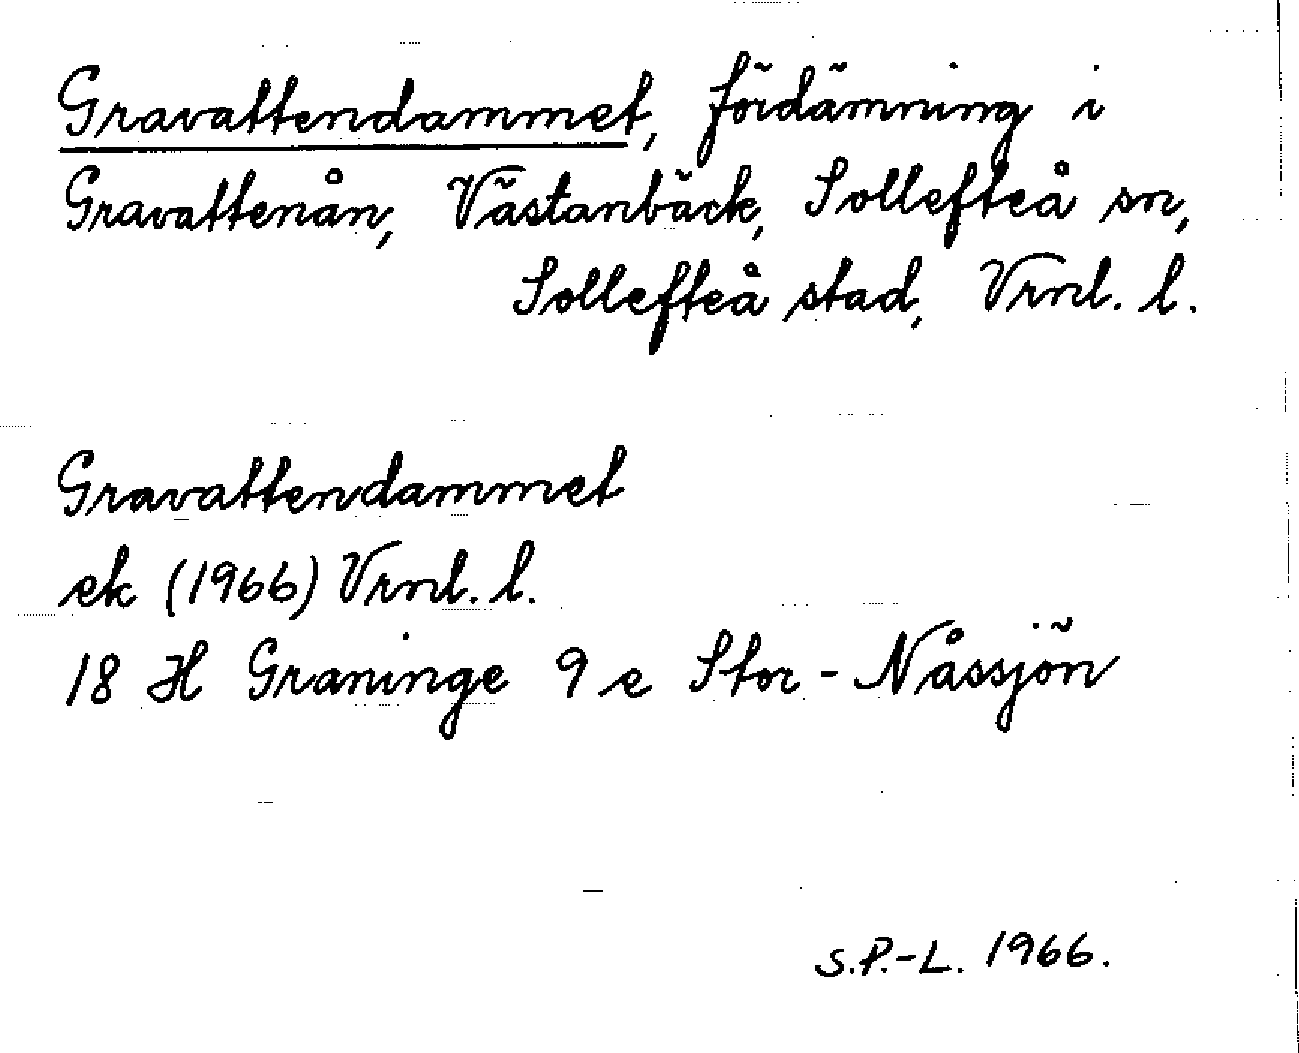 Gravattendammet, fördämning i
Gravattenån, Västanbäck, Sollefteå sn,
Sollefteå stad, Vrnl. l.
Gravattendammet
ek (1966) Vrnl. l.
18 H Graninge 9 e Stor-Nåssjön
S.P.-L. 1966.